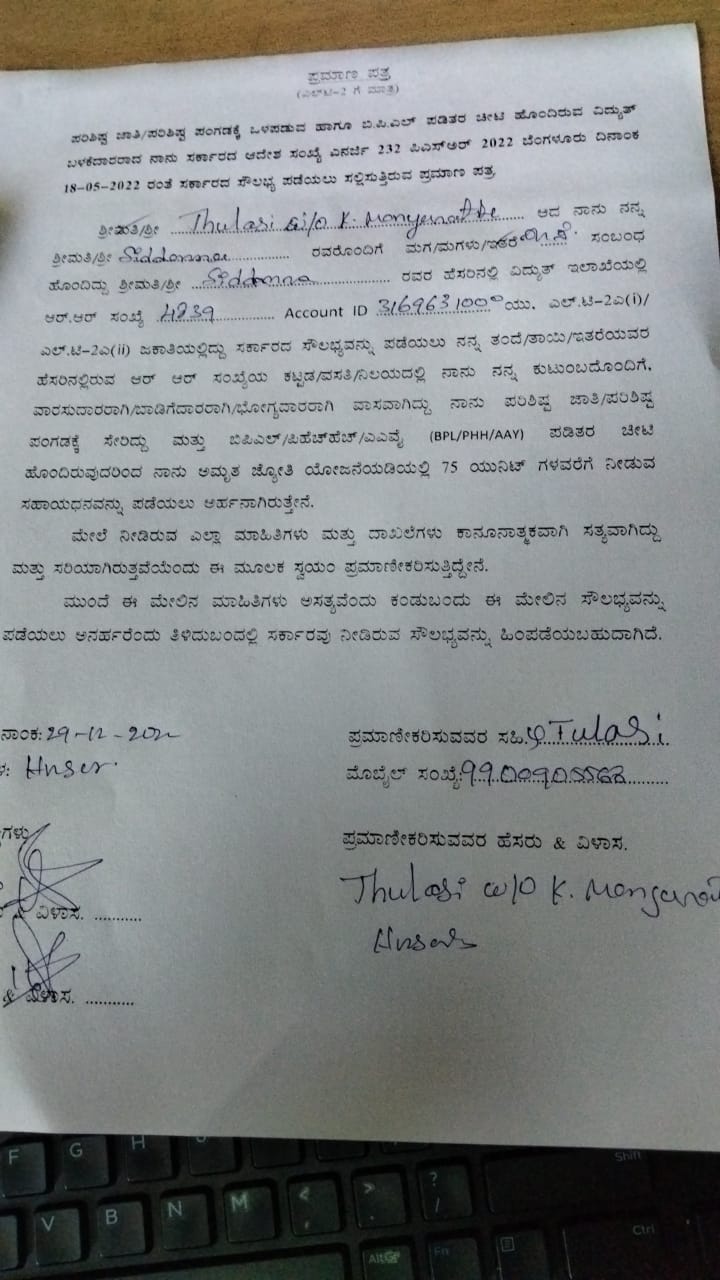 ಪ್ರಮಾಣ ಪತ್ರ
(ಎಲ್‌ಟಿ-2 ಗೆ ಮಾತ್ರ)
ಪರಿಶಿಷ್ಟ ಜಾತಿ/ಪರಿಶಿಷ್ಟ ಪಂಗಡಕ್ಕೆ ಒಳಪಡುವ ಹಾಗೂ ಬಿ.ಪಿ.ಎಲ್ ಪಡಿತರ ಚೀಟಿ ಹೊಂದಿರುವ ವಿದ್ಯುತ್
ಬಳಕೆದಾರರಾದ ನಾನು ಸರ್ಕಾರದ ಆದೇಶ ಸಂಖ್ಯೆ ಎನರ್ಜಿ 232 ಪಿಎಸ್ಆರ್ 2022 ಬೆಂಗಳೂರು ದಿನಾಂಕ
18-05-2022 ರಂತೆ ಸರ್ಕಾರದ ಸೌಲಭ್ಯ ಪಡೆಯಲು ಸಲ್ಲಿಸುತ್ತಿರುವ ಪ್ರಮಾಣ ಪತ್ರ
ಶ್ರೀಮತಿ/ಶ್ರೀ Thulasi w/o K. ಆದ ನಾನು ನನ್ನ
ಶ್ರೀಮತಿ/ಶ್ರೀ Siddamma ರವರೊಂದಿಗೆ ಮಗ/ಮಗಳು/ಇತರೆ ಸಂಬಂಧ
ಹೊಂದಿದ್ದು ಶ್ರೀಮತಿ/ಶ್ರೀ Siddamma ರವರ ಹೆಸರಿನಲ್ಲಿ ವಿದ್ಯುತ್ ಇಲಾಖೆಯಲ್ಲಿ
ಆರ್.ಆರ್ ಸಂಖ್ಯೆ 4839 Account ID 3169631000 ಯು. ಎಲ್.ಟಿ-2ಎ(i)/
ಎಲ್.ಟಿ-2ಎ(ii) ಜಕಾತಿಯಲ್ಲಿದ್ದು ಸರ್ಕಾರದ ಸೌಲಭ್ಯವನ್ನು ಪಡೆಯಲು ನನ್ನ ತಂದೆ/ತಾಯಿ/ಇತರೆಯವರ
ಹೆಸರಿನಲ್ಲಿರುವ ಆರ್ ಆರ್ ಸಂಖ್ಯೆಯ ಕಟ್ಟಡ/ವಸತಿ/ನಿಲಯದಲ್ಲಿ ನಾನು ನನ್ನ ಕುಟುಂಬದೊಂದಿಗೆ,
ವಾರಸುದಾರರಾಗಿ/ಬಾಡಿಗೆದಾರರಾಗಿ/ಭೋಗ್ಯದಾರರಾಗಿ ವಾಸವಾಗಿದ್ದು ನಾನು ಪರಿಶಿಷ್ಟ ಜಾತಿ/ಪರಿಶಿಷ್ಟ
ಪಂಗಡಕ್ಕೆ ಸೇರಿದ್ದು ಮತ್ತು ಬಿಪಿಎಲ್/ಪಿಹೆಚ್‌ಹೆಚ್/ಎಎವೈ (BPL/PHH/AAY) ಪಡಿತರ ಚೀಟಿ
ಹೊಂದಿರುವುದರಿಂದ ನಾನು ಅಮೃತ ಜ್ಯೋತಿ ಯೋಜನೆಯಡಿಯಲ್ಲಿ 75 ಯುನಿಟ್ ಗಳವರೆಗೆ ನೀಡುವ
ಸಹಾಯಧನವನ್ನು ಪಡೆಯಲು ಅರ್ಹನಾಗಿರುತ್ತೇನೆ.
ಮೇಲೆ ನೀಡಿರುವ ಎಲ್ಲಾ ಮಾಹಿತಿಗಳು ಮತ್ತು ದಾಖಲೆಗಳು ಕಾನೂನಾತ್ಮಕವಾಗಿ ಸತ್ಯವಾಗಿದ್ದು
ಮತ್ತು ಸರಿಯಾಗಿರುತ್ತವೆಯೆಂದು ಈ ಮೂಲಕ ಸ್ವಯಂ ಪ್ರಮಾಣೀಕರಿಸುತ್ತಿದ್ದೇನೆ.
ಮುಂದೆ ಈ ಮೇಲಿನ ಮಾಹಿತಿಗಳು ಅಸತ್ಯವೆಂದು ಕಂಡುಬಂದು ಈ ಮೇಲಿನ ಸೌಲಭ್ಯವನ್ನು
ಪಡೆಯಲು ಅನರ್ಹರೆಂದು ತಿಳಿದುಬಂದಲ್ಲಿ ಸರ್ಕಾರವು ನೀಡಿರುವ ಸೌಲಭ್ಯವನ್ನು ಹಿಂಪಡೆಯಬಹುದಾಗಿದೆ.
ನಾಂಕ: 29-12-202
ಪ್ರಮಾಣೀಕರಿಸುವವರ ಸಹಿ. Tulasi
ಮೊಬೈಲ್ ಸಂಖ್ಯೆ: 9900905563
ಪ್ರಮಾಣೀಕರಿಸುವವರ ಹೆಸರು & ವಿಳಾಸ.
Thulasi w/o K.
ಗಳು
& ವಿಳಾಸ.
& ವಿಳಾಸ.
F G H
V B N M < > ? /
Shift
AltGr Fn Ctrl